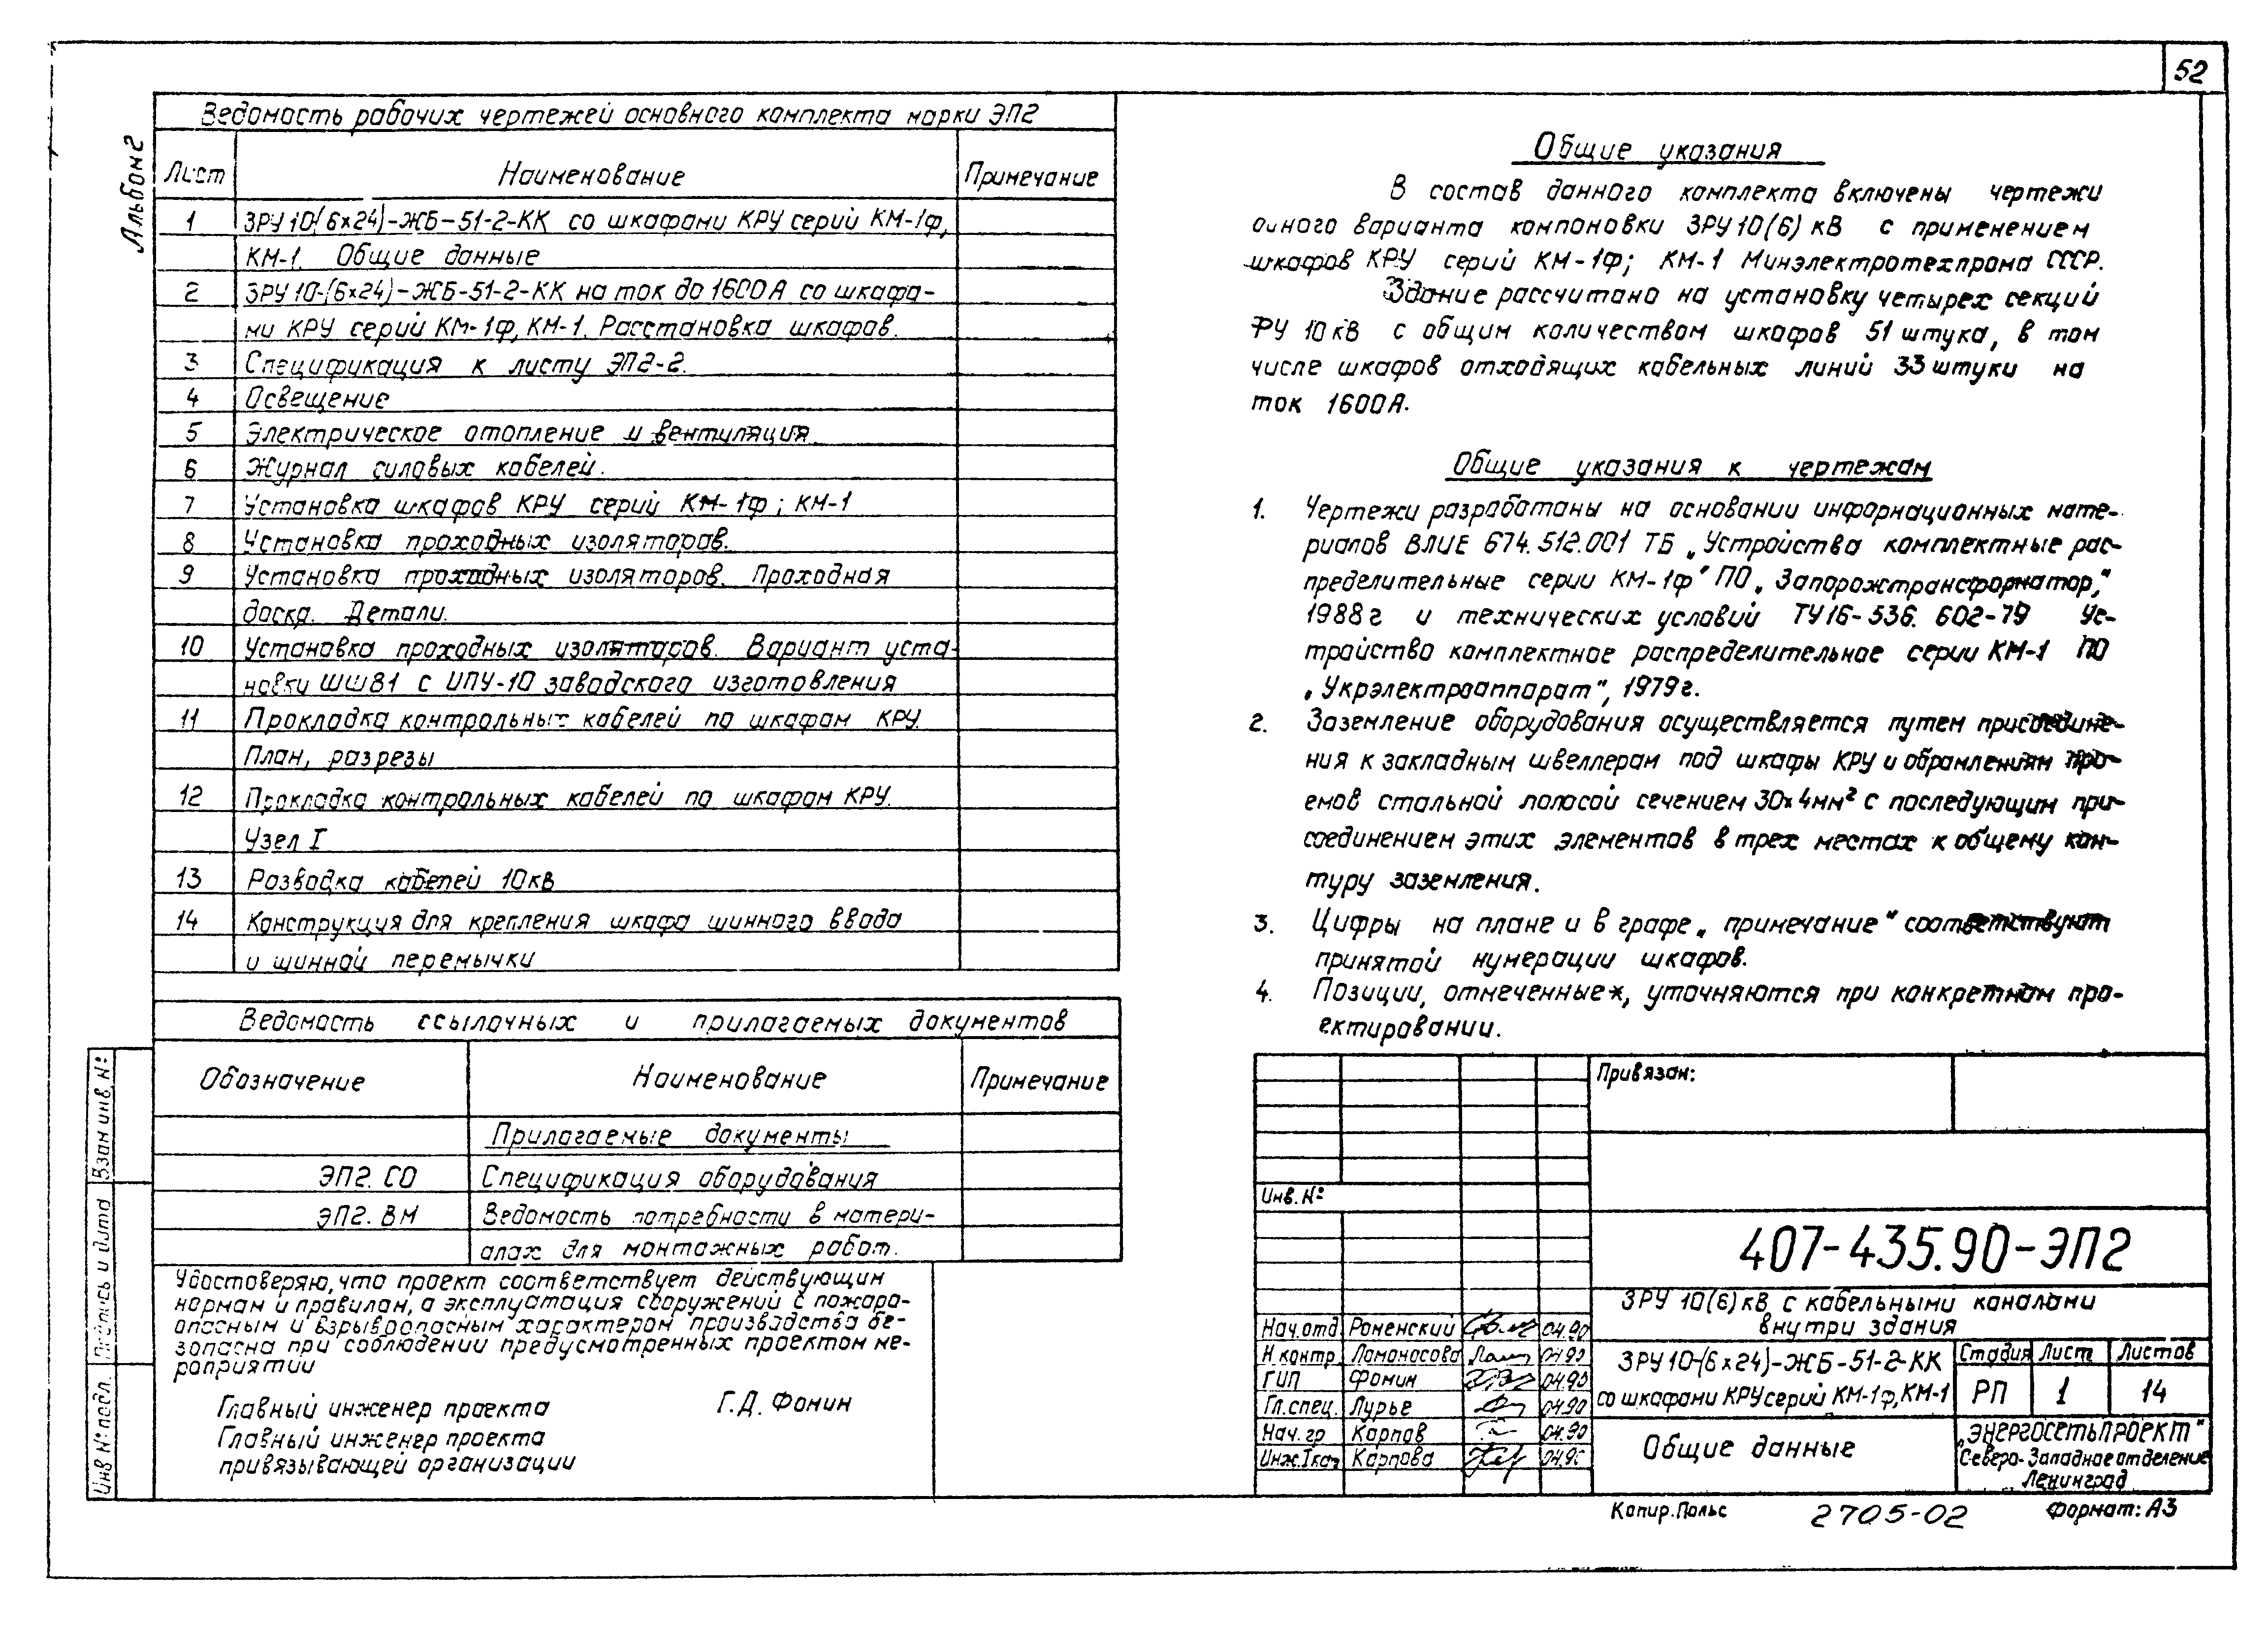 52
Альбом 2
Ведомость рабочих чертежей основного комплекта марки ЭП2
Лист Наименование Примечание
1 ЗРУ 10-(6×24)-ЖБ-51-2-КК со шкафами КРУ серий КМ-1ф,
КМ-1. Общие данные
2 ЗРУ 10-(6×24)-ЖБ-51-2-КК на ток до 1600А со шкафа-
ми КРУ серий КМ-1ф, КМ-1. Расстановка шкафов.
3 Спецификация к листу ЭП2-2.
4 Освещение
5 Электрическое отопление и вентиляция.
6 Журнал силовых кабелей.
7 Установка шкафов КРУ серий КМ-1ф; КМ-1
8 Установка проходных изоляторов.
9 Установка проходных изоляторов. Проходная
доска. Детали.
10 Установка проходных изоляторов. Вариант уста-
новки ШШВ1 с ИПУ-10 заводского изготовления
11 Прокладка контрольных кабелей по шкафам КРУ.
План, разрезы
12 Прокладка контрольных кабелей по шкафам КРУ.
Узел I
13 Разводка кабелей 10кВ
14 Конструкция для крепления шкафа шинного ввода
и шинной перемычки
Ведомость ссылочных и прилагаемых документов
Обозначение Наименование Примечание
Прилагаемые документы
ЭП2. СО Спецификация оборудования
ЭП2. ВМ Ведомость потребности в матери-
алах для монтажных работ.
Удостоверяю, что проект соответствует действующим
нормам и правилам, а эксплуатация сооружений с пожаро-
опасным и взрывоопасным характером производства бе-
зопасна при соблюдении предусмотренных проектом ме-
роприятии
Главный инженер проекта Г.Д. Фомин
Главный инженер проекта
привязывающей организации
Взам инв. №
Подпись и дата
Инв № подл.
Общие указания
В состав данного комплекта включены чертежи
одного варианта компоновки ЗРУ 10(6) кВ с применением
шкафов КРУ серий КМ-1ф; КМ-1 Минэлектротехпрома СССР.
Здание рассчитано на установку четырех секций
РУ 10кВ с общим количеством шкафов 51 штука, в том
числе шкафов отходящих кабельных линий 33 штуки на
ток 1600А.
Общие указания к чертежам
1. Чертежи разработаны на основании информационных мате-
риалов ВЛИЕ 674.512.001 ТБ „Устройства комплектные рас-
пределительные серии КМ-1ф" ПО „Запорожтрансформатор,"
1988г и технических условий ТУ16-536.602-79 Ус-
тройство комплектное распределительное серии КМ-1 ПО
„Укрэлектроаппарат", 1979г.
2. Заземление оборудования осуществляется путем присоедине-
ния к закладным швеллерам под шкафы КРУ и обрамлениям про-
емов стальной полосой сечением 30×4мм² с последующим при-
соединением этих элементов в трех местах к общему кон-
туру заземления.
3. Цифры на плане и в графе „примечание" соответствуют
принятой нумерации шкафов.
4. Позиции, отмеченные*, уточняются при конкретном про-
ектировании.
Привязан:
Инв. №
407-435.90-ЭП2
ЗРУ 10(6)кВ с кабельными каналами
внутри здания
Нач.отд Роменский 04.90
Н контр. Ломоносова 04.90
ГИП Фомин 04.90
Гл.спец. Лурье 04.90
Нач. гр Карпов 04.90
Инж.Iкат Карпова 04.90
ЗРУ10-(6×24)-ЖБ-51-2-КК
со шкафами КРУ серий КМ-1ф, КМ-1
Стадия Лист Листов
РП 1 14
Общие данные
„ЭНЕРГОСЕТЬПРОЕКТ"
Северо-Западное отделение
Ленинград
Копир. Польс 2705-02 Формат: А3